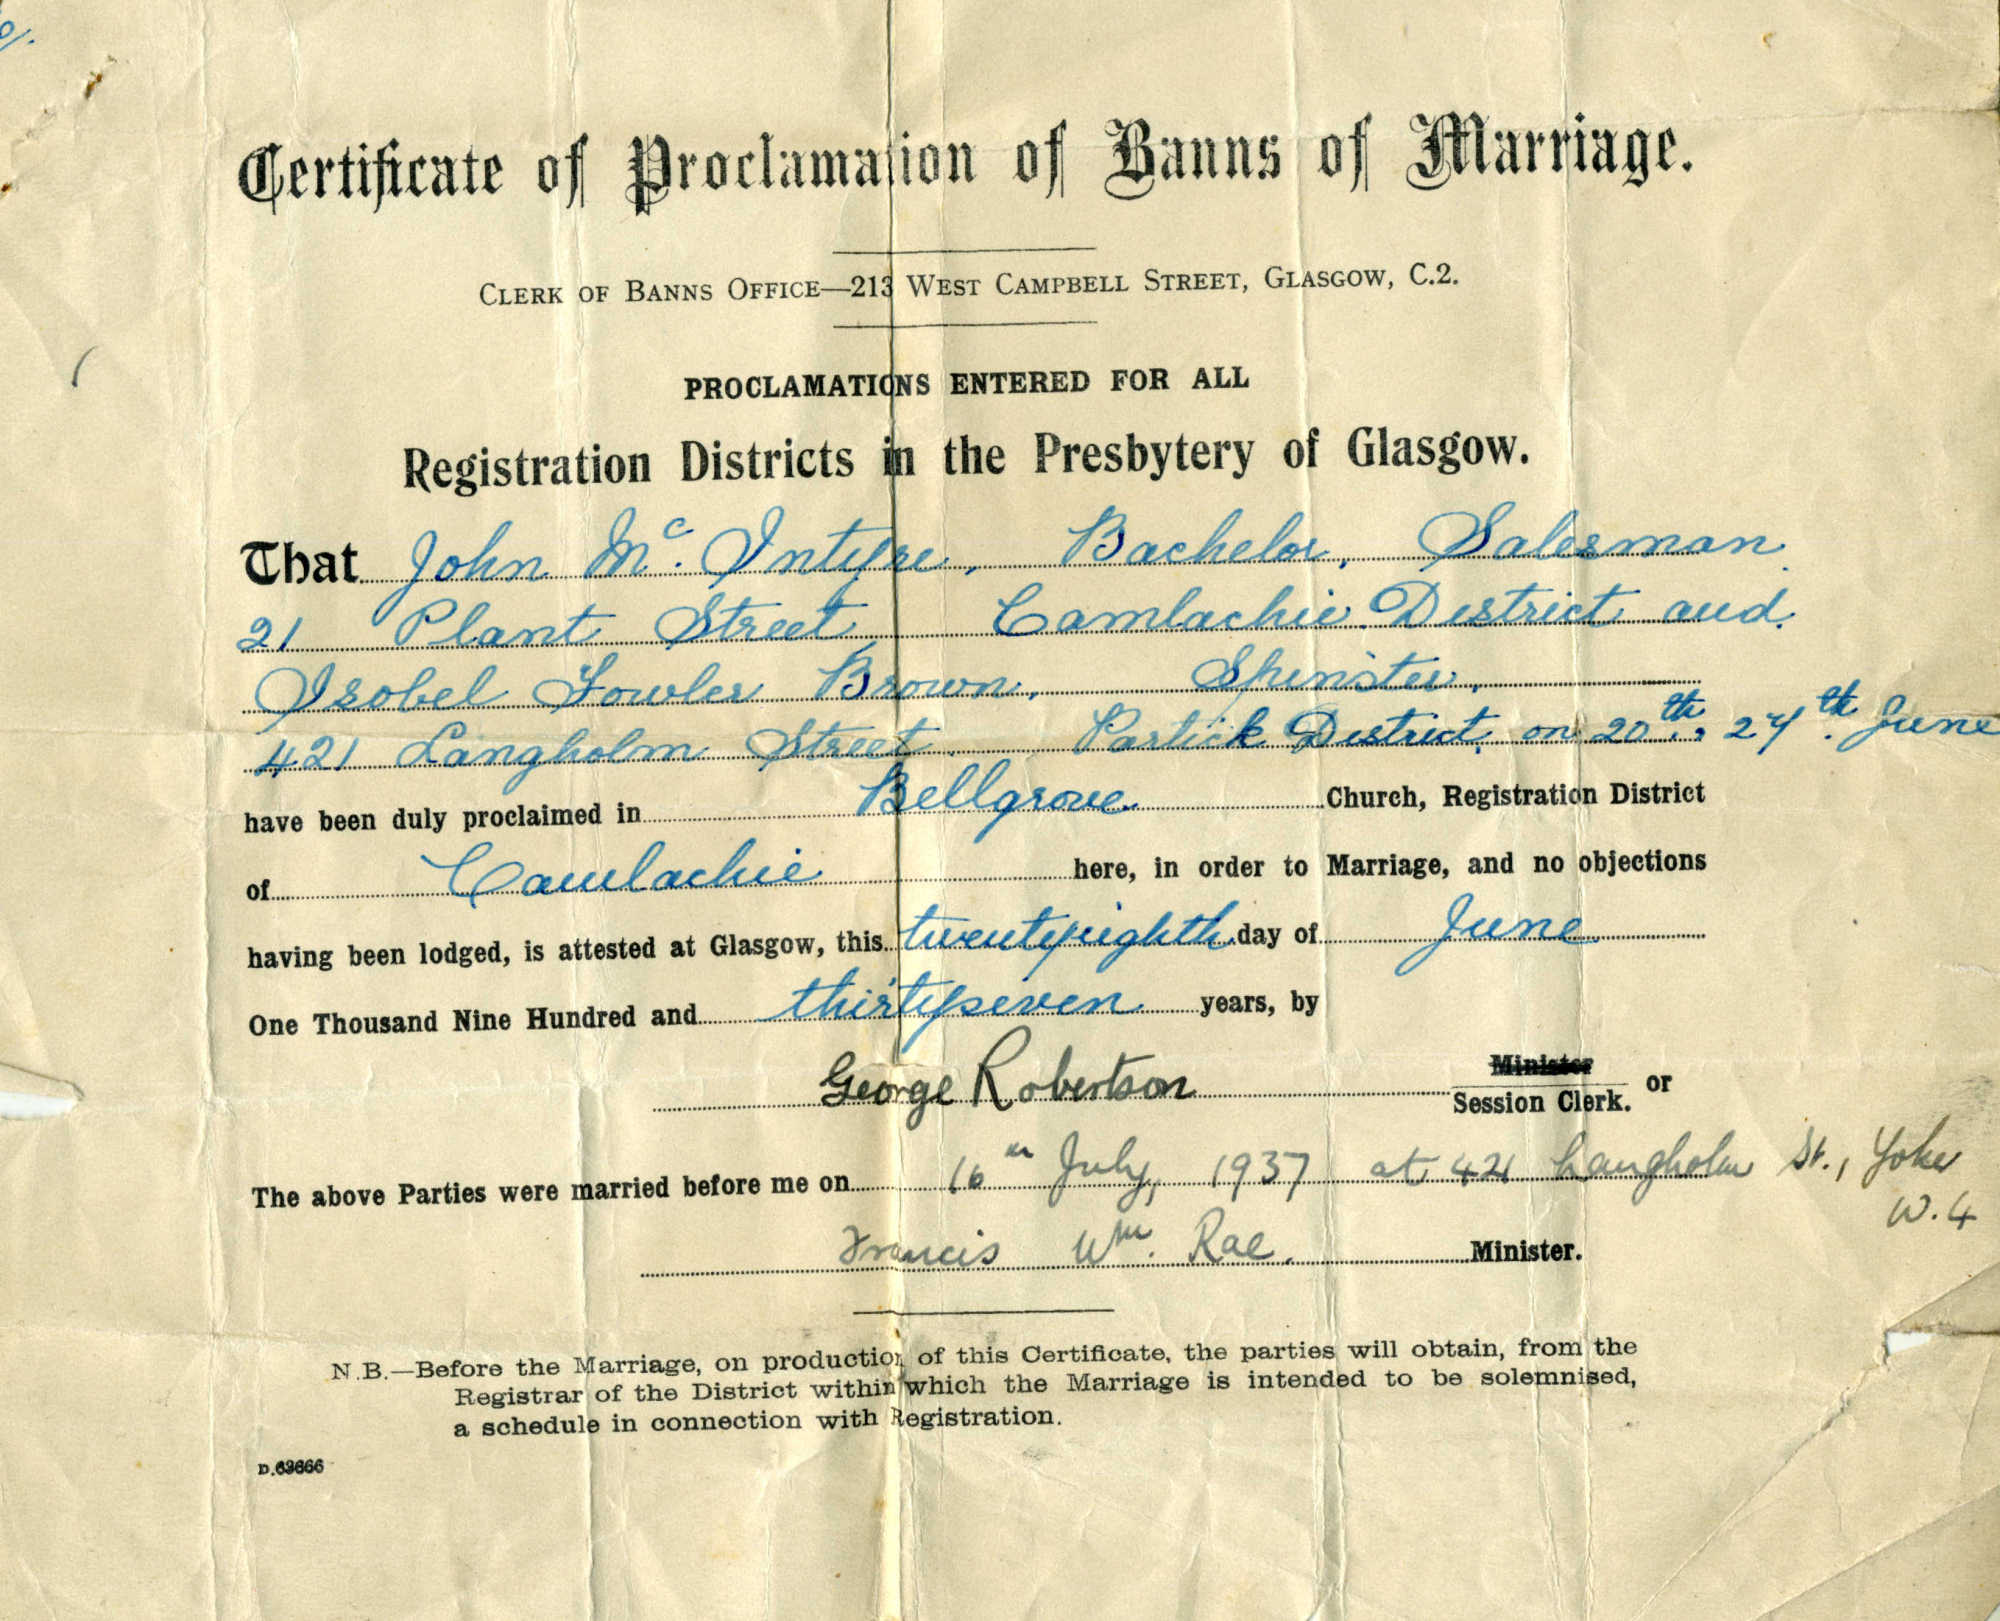 Certificate of Proclamation of Banns of Marriage.
CLERK OF BANNS OFFICE—213 WEST CAMPBELL STREET, GLASGOW, C.2.
PROCLAMATIONS ENTERED FOR ALL
Registration Districts in the Presbytery of Glasgow.
That John Mc. Intyre, Bachelor, Salesman
21 Plant Street Camlachie District and
Isobel Fowler Brown, Spinster,
421 Langholm Street Partick District, on 20th, 27th June
have been duly proclaimed in Bellgrove Church, Registration District
of Camlachie here, in order to Marriage, and no objections
having been lodged, is attested at Glasgow, this twentyeighth day of June
One Thousand Nine Hundred and thirtyseven years, by
George Robertson Minister or
Session Clerk.
The above Parties were married before me on 16th July, 1937 at 421 Langholm St., Yoker
W.4
Francis Wm. Rae. Minister.
N.B.—Before the Marriage, on production of this Certificate, the parties will obtain, from the
Registrar of the District within which the Marriage is intended to be solemnised,
a schedule in connection with Registration.
D.63666